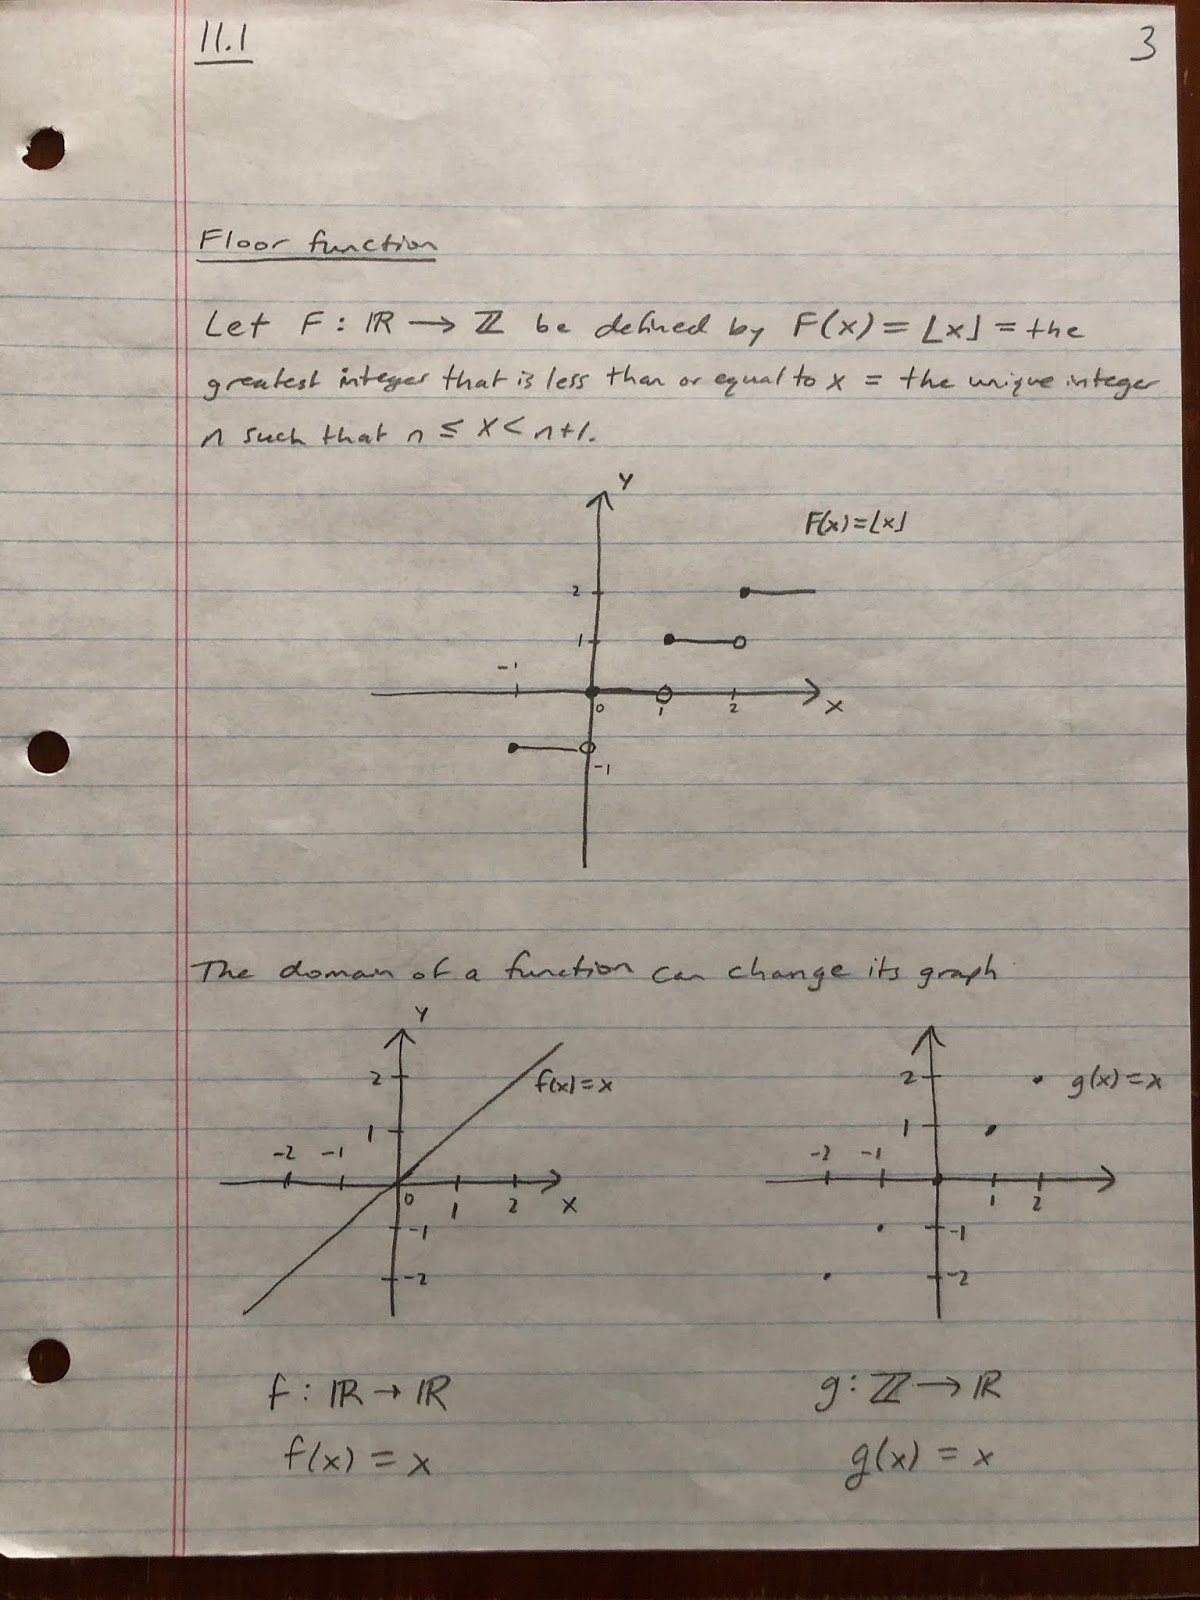 11.1
3
Floor function
Let F : ℝ → ℤ be defined by F(x) = ⌊x⌋ = the
greatest integer that is less than or equal to x = the unique integer
n such that n ≤ x < n+1.
Y
F(x)=⌊x⌋
2
1
-1
0 1 2 X
-1
The domain of a function can change its graph
Y
2 f(x)=x
1
-2 -1
0 1 2 X
-1
-2
2 g(x)=x
1
-2 -1
1 2
-1
-2
f : ℝ → ℝ
f(x) = x
g : ℤ → ℝ
g(x) = x